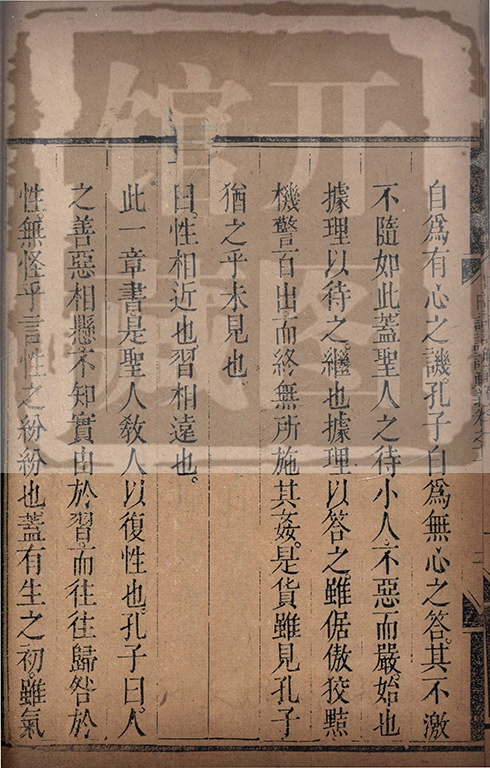 自爲有心之譏孔子自爲無心之答。其不激
不隨如此蓋聖人之待小人不惡而嚴。始也
據理以待之。繼也據理以答之雖倨傲狡黠
機警百出。而終無所施其姦。是貨雖見孔子
猶之乎未見也
曰。性相近也習相遠也。
此一章書是聖人敎人以復性也。孔子曰。人
之善惡相懸。不知實由於習。而往往歸咎於
性。無怪乎言性之紛紛也。蓋有生之初。雖氣
开图
馆藏